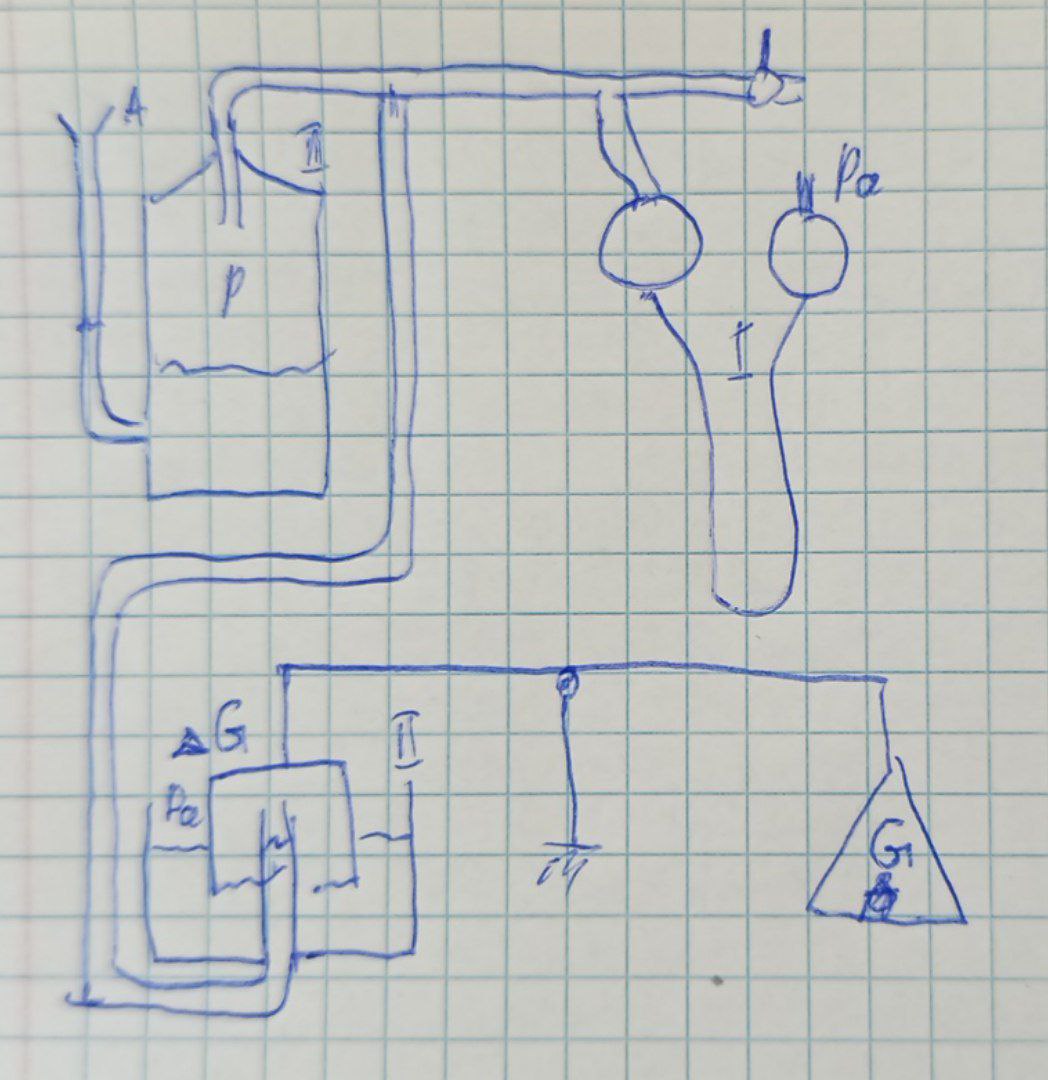 A
III
Pa
P
I
ΔG
II
Pa
G